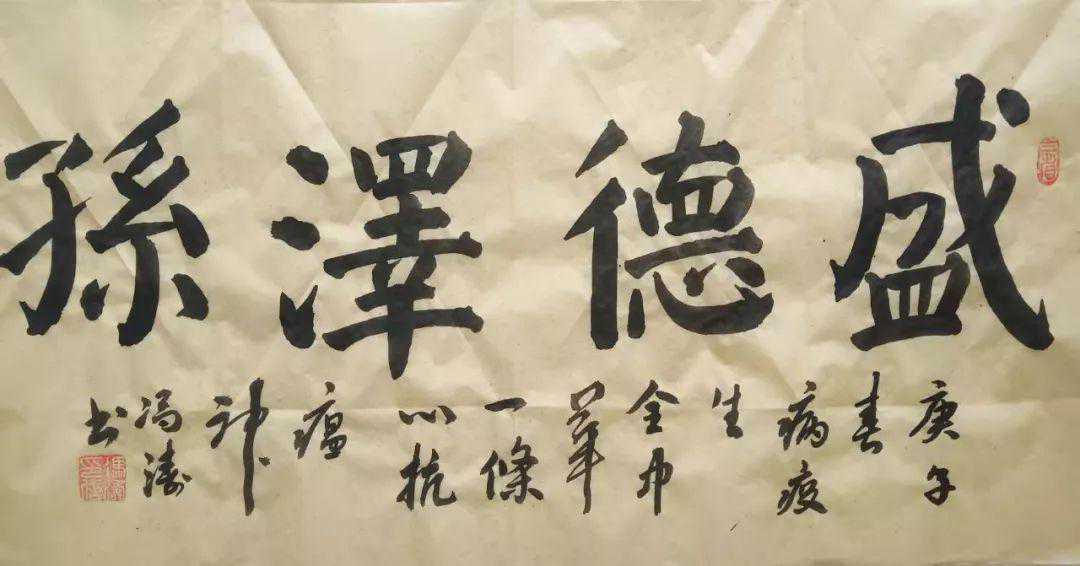 盛德澤孫
庚子
春
病疫
生
全中
華
一條
心抗
瘟
神
冯濤
书